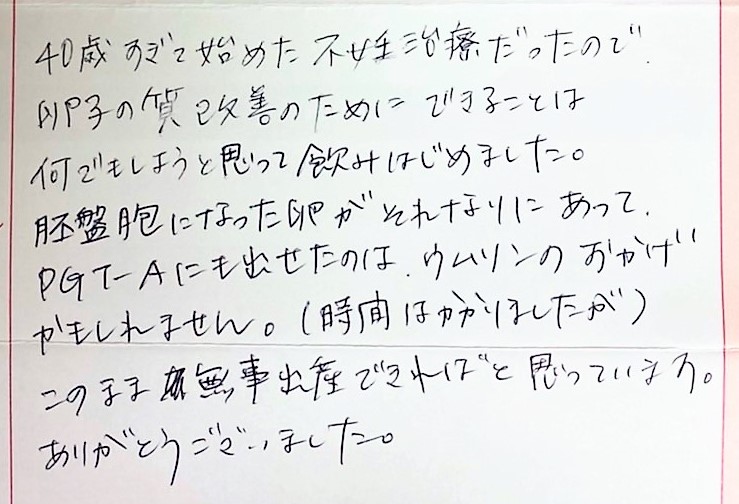 40歳すぎて始めた不妊治療だったので、
卵子の質改善のためにできることは
何でもしようと思って飲みはじめました。
胚盤胞になった卵がそれなりにあって、
PGT-Aにも出せたのは、ウムリンのおかげ
かもしれません。(時間はかかりましたが)
このまま無事出産できればと思っています。
ありがとうございました。